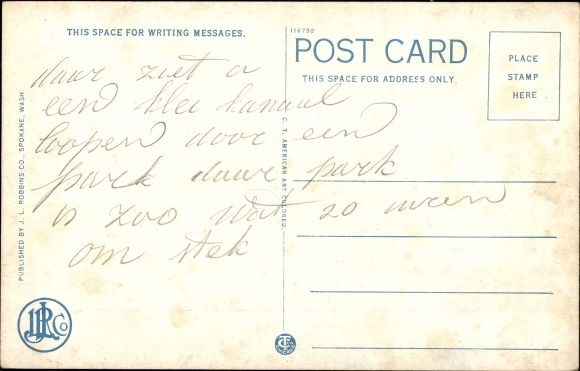 THIS SPACE FOR WRITING MESSAGES.
116750
POST CARD
THIS SPACE FOR ADDRESS ONLY.
PLACE
STAMP
HERE
daar ziet o
een klei kanaal
loopen door een
park daar park
is zoo wat 20 uuren
om stek
PUBLISHED BY J. L. ROBBINS CO., SPOKANE, WASH.
C. T. AMERICAN ART COLORED.
JLR Co